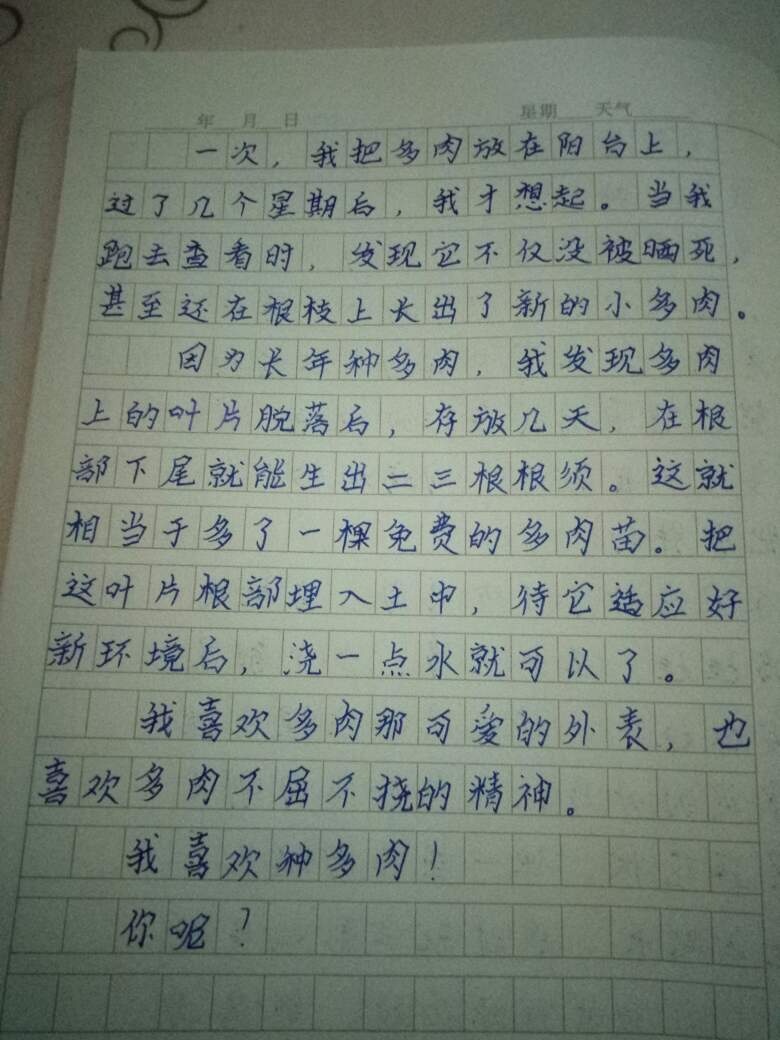 年 月 日 星期 天气
一次，我把多肉放在阳台上，
过了几个星期后，我才想起。当我
跑去查看时，发现它不仅没被晒死，
甚至还在根枝上长出了新的小多肉。
因为长年种多肉，我发现多肉
上的叶片脱落后，存放几天，在根
部下尾就能生出二三根根须。这就
相当于多了一棵免费的多肉苗。把
这叶片根部埋入土中，待它适应好
新环境后，浇一点水就可以了。
我喜欢多肉那可爱的外表，也
喜欢多肉不屈不挠的精神。
我喜欢种多肉！
你呢？